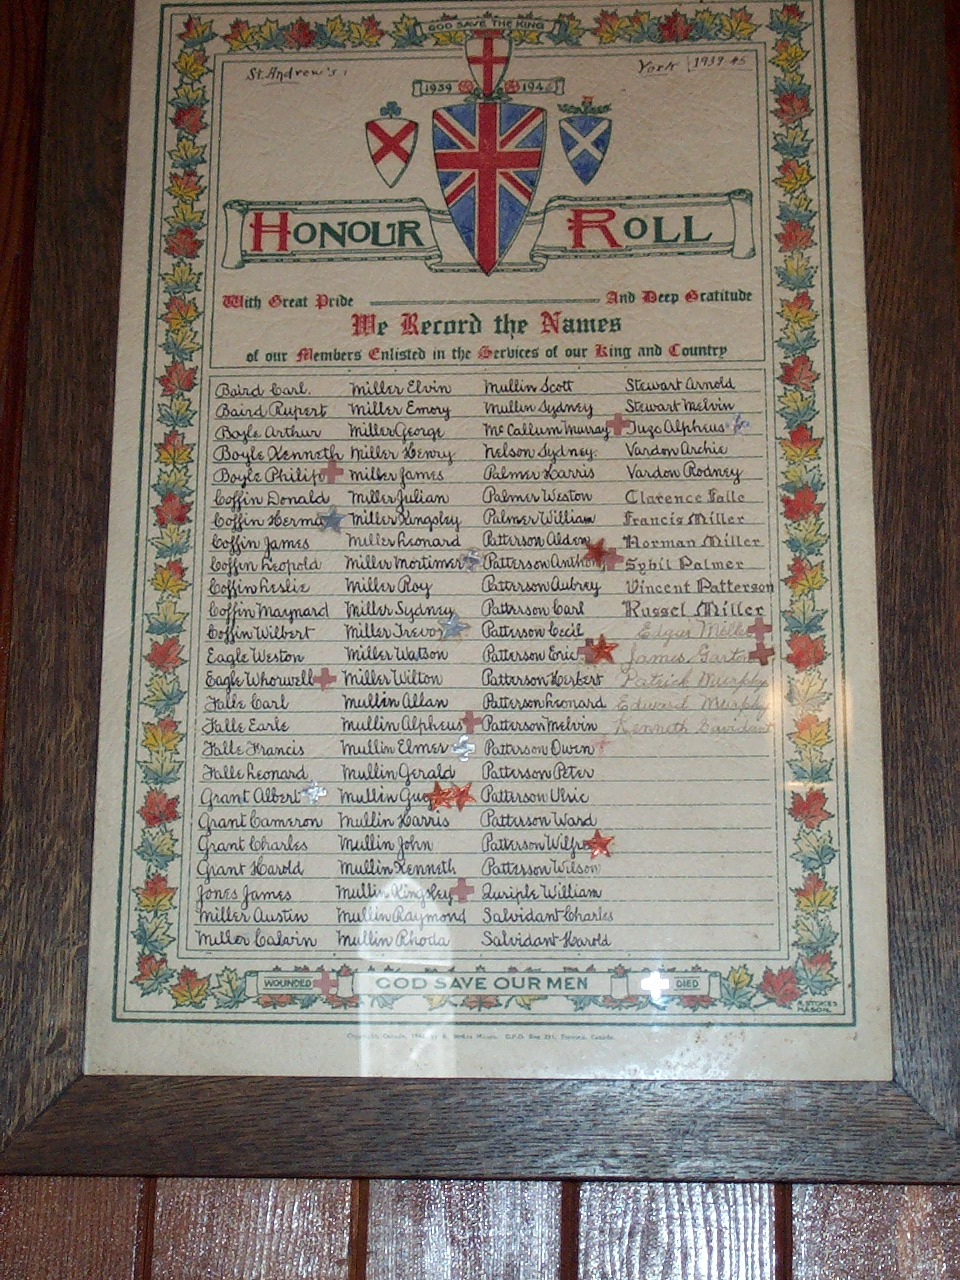 GOD SAVE THE KING
St. Andrew's York 1939-45
1939 194
HONOUR ROLL
With Great Pride And Deep Gratitude
We Record the Names
of our Members Enlisted in the Services of our King and Country
Baird Carl. Miller Elvin Mullin Scott Stewart Arnold
Baird Rupert Miller Emory Mullin Sydney Stewart Melvin
Boyle Arthur Miller George McCallum Murray Tuzo Alpheus
Boyle Kenneth Miller Henry Nelson Sydney. Vardon Archie
Boyle Philip Miller James Palmer Harris Vardon Rodney
Coffin Donald Miller Julian Palmer Weston Clarence Falle
Coffin Herma Miller Kingsley Palmer William Francis Miller
Coffin James Miller Leonard Patterson Alden Norman Miller
Coffin Leopold Miller Mortimer Patterson Anthon Sybil Palmer
Coffin Leslie Miller Roy Patterson Aubrey Vincent Patterson
Coffin Maynard Miller Sydney Patterson Carl Russel Miller
Coffin Wilbert Miller Trevo Patterson Cecil Edgar Miller
Eagle Weston Miller Watson Patterson Eric James Garto
Eagle Whorwell Miller Wilton Patterson Herbert Patrick Murphy
Falle Carl Mullin Allan Patterson Leonard Edward Murphy
Falle Earle Mullin Alpheus Patterson Melvin Kenneth
Falle Francis Mullin Elmer Patterson Owen
Falle Leonard Mullin Gerald Patterson Peter
Grant Albert Mullin Guy Patterson Ulric
Grant Cameron Mullin Harris Patterson Ward
Grant Charles Mullin John Patterson Wilfre
Grant Harold Mullin Kenneth Patterson Wilson
Jones James Mullin Kingsley Quriple William
Miller Austin Mullin Raymond Salvidant Charles
Miller Calvin Mullin Rhoda Salvidant Harold
WOUNDED GOD SAVE OUR MEN DIED
A. STOKES
MASON.